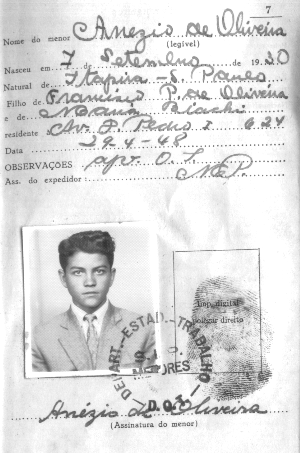 7
Nome do menor Anezis de Oliveira
(legível)
Nasceu em 7 de Setembro de 1930
Natural de Itapira - S. Paulo
Filho de Francisco P. de Oliveira
e de Biachi
residente Av. P. Pedro I 624
Data 29-4-48
OBSERVAÇÕES apr. O. I.
Ass. do expedidor:
Imp. digital
polegar direito
DEPART. ESTAD. TRABALHO
MENORES
Anézis de Oliveira
(Assinatura do menor)